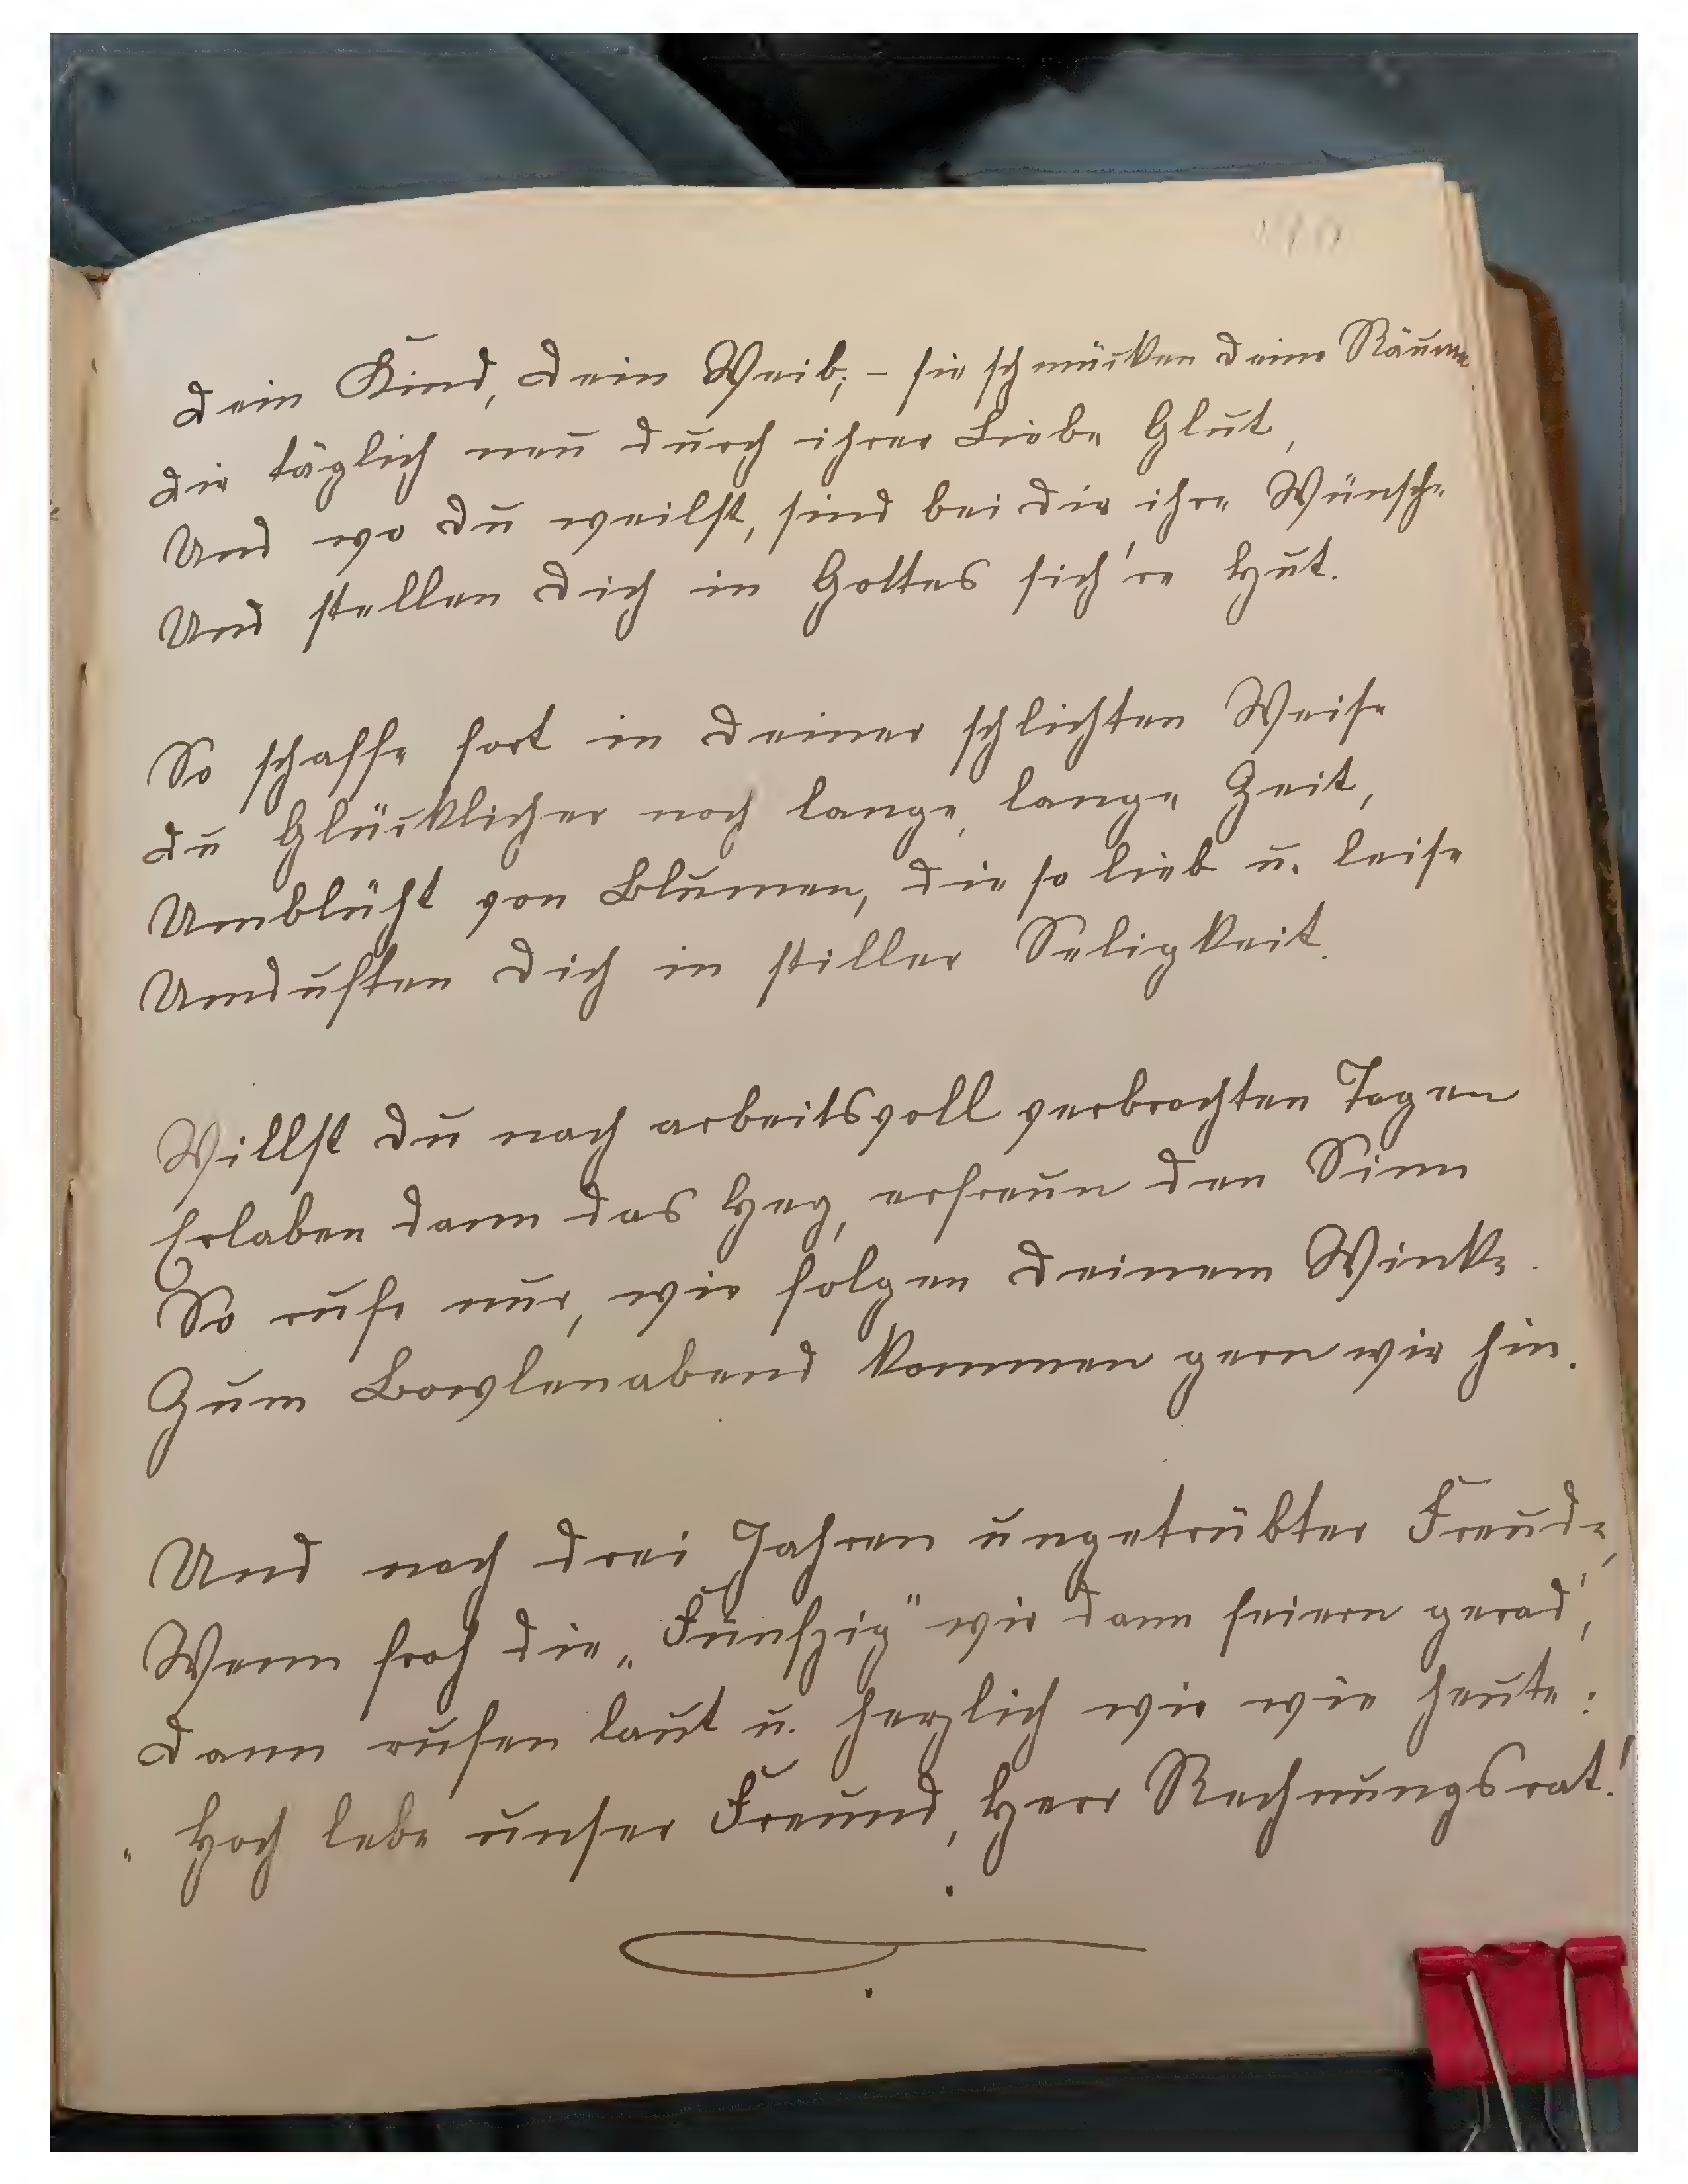 Dein Kind, dein Weib, – sie schmücken deine Räume
Dir täglich neu durch ihrer Liebe Glut,
Und wo du weilst, sind bei dir ihre Wünsche
Und stellen dich in Gottes sich're Hut.
So schaffe fort in deiner schlichten Weise
Du Glücklicher noch lange, lange Zeit,
Umblüht von Blumen, die so lieb u. leise
Umduften dich in stiller Seligkeit.
Willst du nach arbeitsvoll verbrachten Tagen
Erlaben dann das Herz, erfreun den Sinn
So rufe nur, wir folgen deinem Winke.
Zum Bowlenabend kommen gern wir hin.
Und nach drei Jahren ungetrübter Freude,
Wenn froh die „Fünfzig" wir dann feiern gerad',
Dann rufen laut u. herzlich wir wie heute:
„Hoch lebe unser Freund, Herr Rechnungsrat!